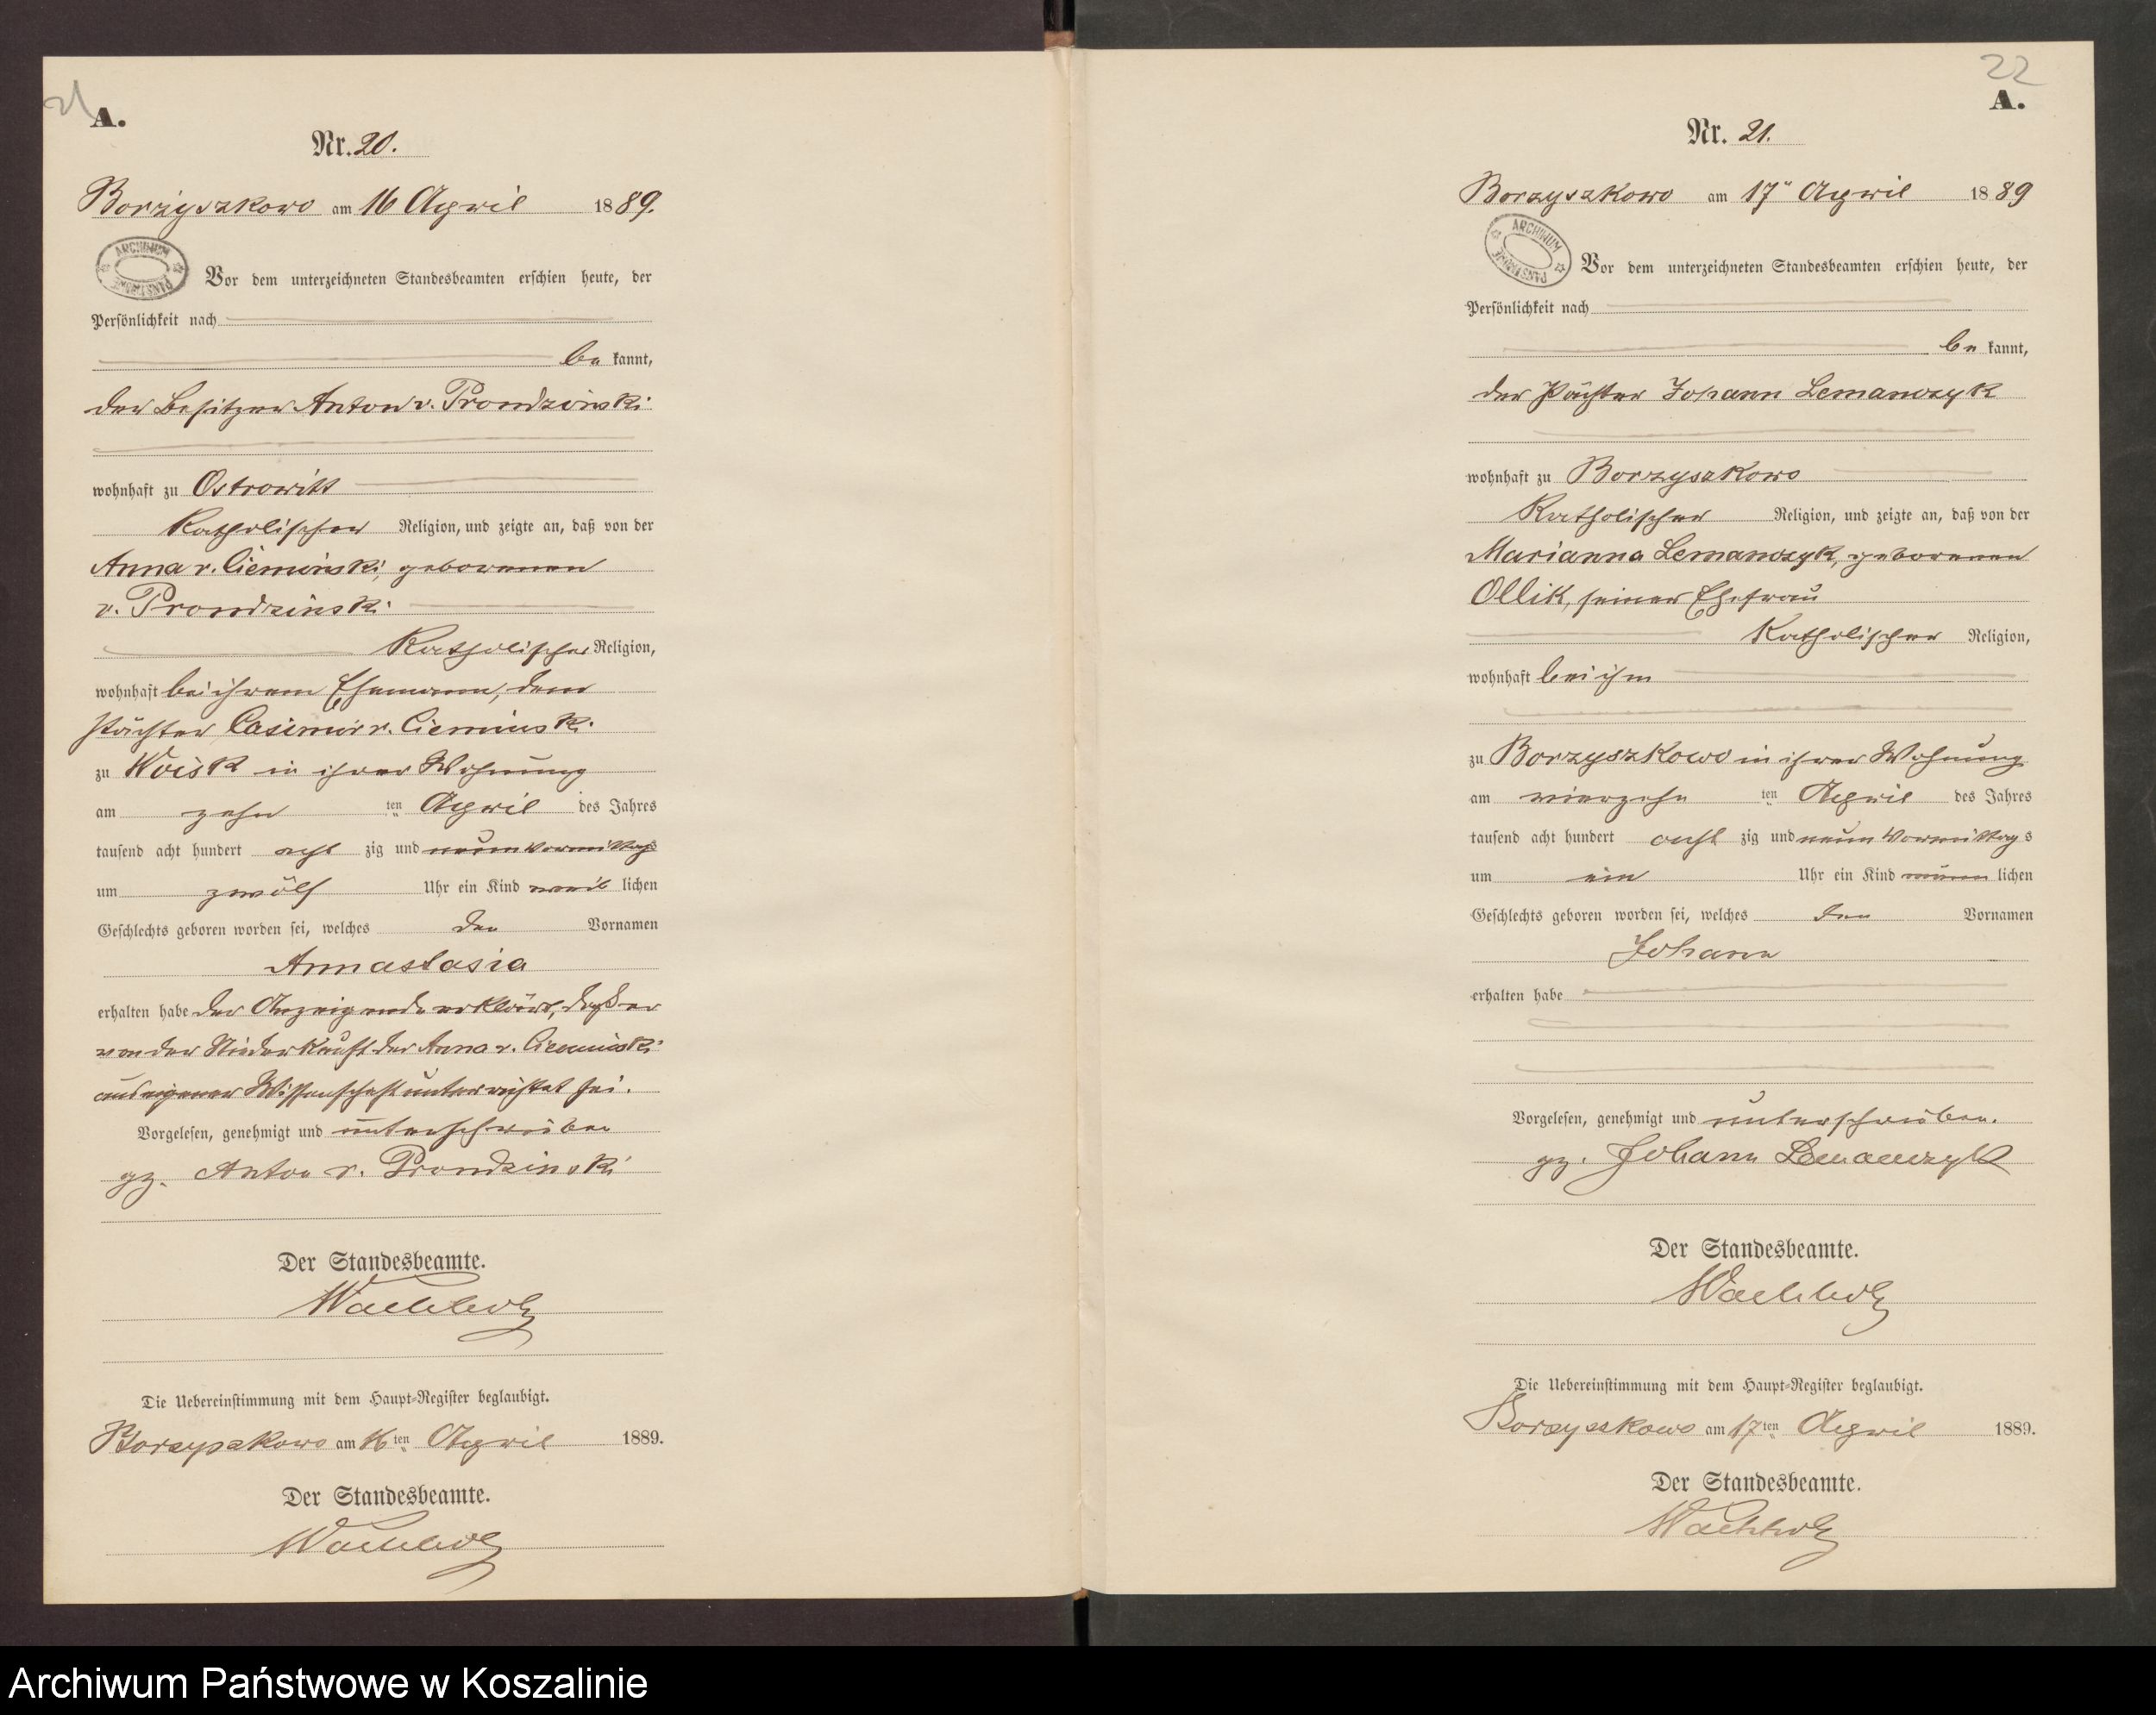 21
A.
Nr. 20.
Borzyszkowo am 16 April 1889.
ARCHIWUM PAŃSTWOWE
Vor dem unterzeichneten Standesbeamten erschien heute, der
Persönlichkeit nach
be kannt,
der Besitzer Anton v. Prondzinski
wohnhaft zu Ostrowitt
Katholischer Religion, und zeigte an, daß von der
Anna v. Cieminski, geborenen
v. Prondzinski
Katholischer Religion,
wohnhaft bei ihrem Ehemann, dem
Pächter Casimir v. Cieminski
zu Woisk in ihrer Wohnung
am zehn ten April des Jahres
tausend acht hundert acht zig und neun Vormittags
um zwölf Uhr ein Kind weib lichen
Geschlechts geboren worden sei, welches den Vornamen
Annastasia
erhalten habe der Anzeigende erklärt, daß er
von der Niederkunft der Anna v. Cieminski
aus eigener Wissenschaft unterrichtet sei.
Vorgelesen, genehmigt und unterschrieben
gz. Anton v. Prondzinski
Der Standesbeamte.
Wachholz
Die Uebereinstimmung mit dem Haupt-Register beglaubigt.
Borzyszkowo am 16 ten April 1889.
Der Standesbeamte.
Wachholz
22
A.
Nr. 21.
Borzyszkowo am 17" April 1889
ARCHIWUM PAŃSTWOWE
Vor dem unterzeichneten Standesbeamten erschien heute, der
Persönlichkeit nach
be kannt,
der Pächter Johann Lemanczyk
wohnhaft zu Borzyszkowo
Katholischer Religion, und zeigte an, daß von der
Marianna Lemanczyk, geborenen
Ollik, seiner Ehefrau
Katholischer Religion,
wohnhaft bei ihm
zu Borzyszkowo in ihrer Wohnung
am vierzehn ten April des Jahres
tausend acht hundert acht zig und neun Vormittags
um ein Uhr ein Kind männ lichen
Geschlechts geboren worden sei, welches den Vornamen
Johann
erhalten habe
Vorgelesen, genehmigt und unterschrieben.
gz. Johann Lemanczyk
Der Standesbeamte.
Wachholz
Die Uebereinstimmung mit dem Haupt-Register beglaubigt.
Borzyszkowo am 17 ten April 1889.
Der Standesbeamte.
Wachholz
Archiwum Państwowe w Koszalinie